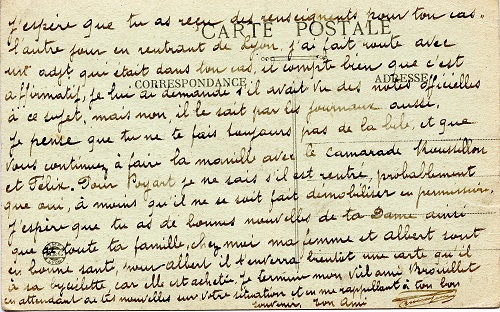 J'espère que tu as reçu des renseignents pour ton cas.
CARTE POSTALE
l'autre jour en rentrant de Lyon, j'ai fait route avec
un adjt qui était dans ton cas, il compte bien que c'est
CORRESPONDANCE
ADRESSE
affirmatif, je lui demande s'il avait vu des notes officielles
à ce sujet, mais non, il le sait par les journaux aussi.
Je pense que tu ne te fais toujours pas de la bile, et que
vous continuez à faire la manille avec le camarade Roussillon
et Félix. Pour Poyart je ne sais s'il est rentré, probablement
que oui, à moins qu'il ne se soit fait démobiliser en permission,
J'espère que tu as de bonnes nouvelles de ta Dame ainsi
que toute ta famille, chez moi ma femme et Albert sont
en bonne santé, mon Albert il t'enverra bientôt une carte qu'il
à sa bycilette, car elle est achetée. Je termine mon Vieil ami Brouillet
en attendant de tes nouvelles sur votre situation et en me rappellant à ton bon
souvenir. Ton Ami